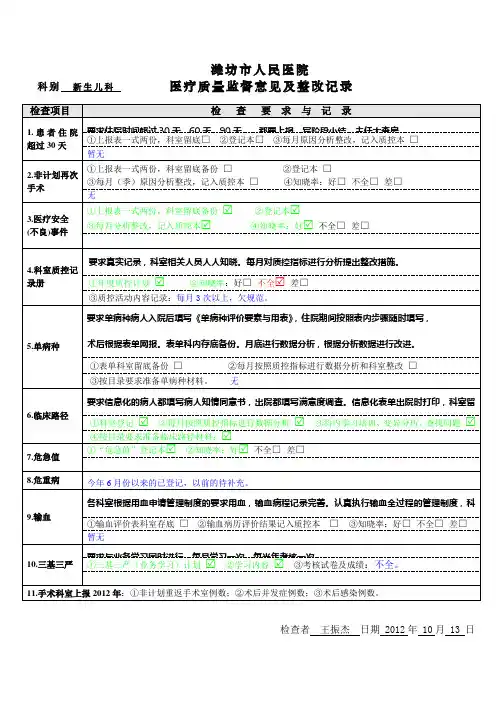 潍坊市人民医院
科别 新生儿科 医疗质量监督意见及整改记录
检查项目 检 查 要 求 与 记 录
1.患者住院超过30天
要求住院时间超过30天、60天、90天
①上报表一式两份，科室留底□ ②登记本□ ③每月原因分析整改，记入质控本 □
暂无
2.非计划再次手术
①上报表一式两份，科室留底备份 □ ②登记本 □
③每月（季）原因分析整改，记入质控本 □ ④知晓率：好□ 不全□ 差□
无
3.医疗安全(不良)事件
①上报表一式两份，科室留底备份 ☑ ②登记本☑
③每月分析整改，记入质控本☑ ④知晓率：好☑ 不全□ 差□
4.科室质控记录册
要求真实记录，科室相关人员人人知晓。每月对质控指标进行分析提出整改措施。
①年度质控计划 ☑ ②知晓率：好□ 不全☑ 差□
③质控活动内容记录：每月3次以上，欠规范。
5.单病种
要求单病种病人入院后填写《单病种评价要素与用表》，住院期间按照表内步骤随时填写，
术后根据表单网报。表单科内存底备份。月底进行数据分析，根据分析数据进行改进。
①表单科室留底备份 □ ②每月按照质控指标进行数据分析和科室整改 □
③按目录要求准备单病种材料。 无
6.临床路径
要求信息化的病人都填写病人知情同意书，出院都填写满意度调查。信息化表单出院时打印，科室留
①科室登记 ☑ ②每月按照质控指标进行数据分析 ☑ ☑
④按目录要求准备临床路径材料：☑
7.危急值
①“危急值”登记本☑ ②知晓率：好☑ 不全□ 差□
8.危重病
今年6月份以来的已登记，以前的待补充。
9.输血
各科室根据用血申请管理制度的要求用血，输血病程记录完善。认真执行输血全过程的管理制度，科
①输血评价表科室存底 □ ②输血病历评价结果记入质控本 □ ③知晓率：好□ 不全□ 差□
暂无
10.三基三严
①三基三严（业务学习）计划 ☑ ②学习内容 ☑ ③考核试卷及成绩：不全。
11.手术科室上报2012年：①非计划重返手术室例数；②术后并发症例数；③术后感染例数。
检查者 王振杰 日期 2012年 10月 13 日